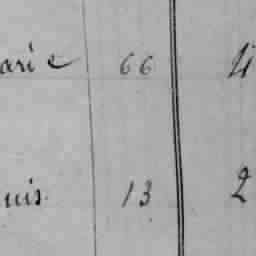 arie 66
uis. 13 2